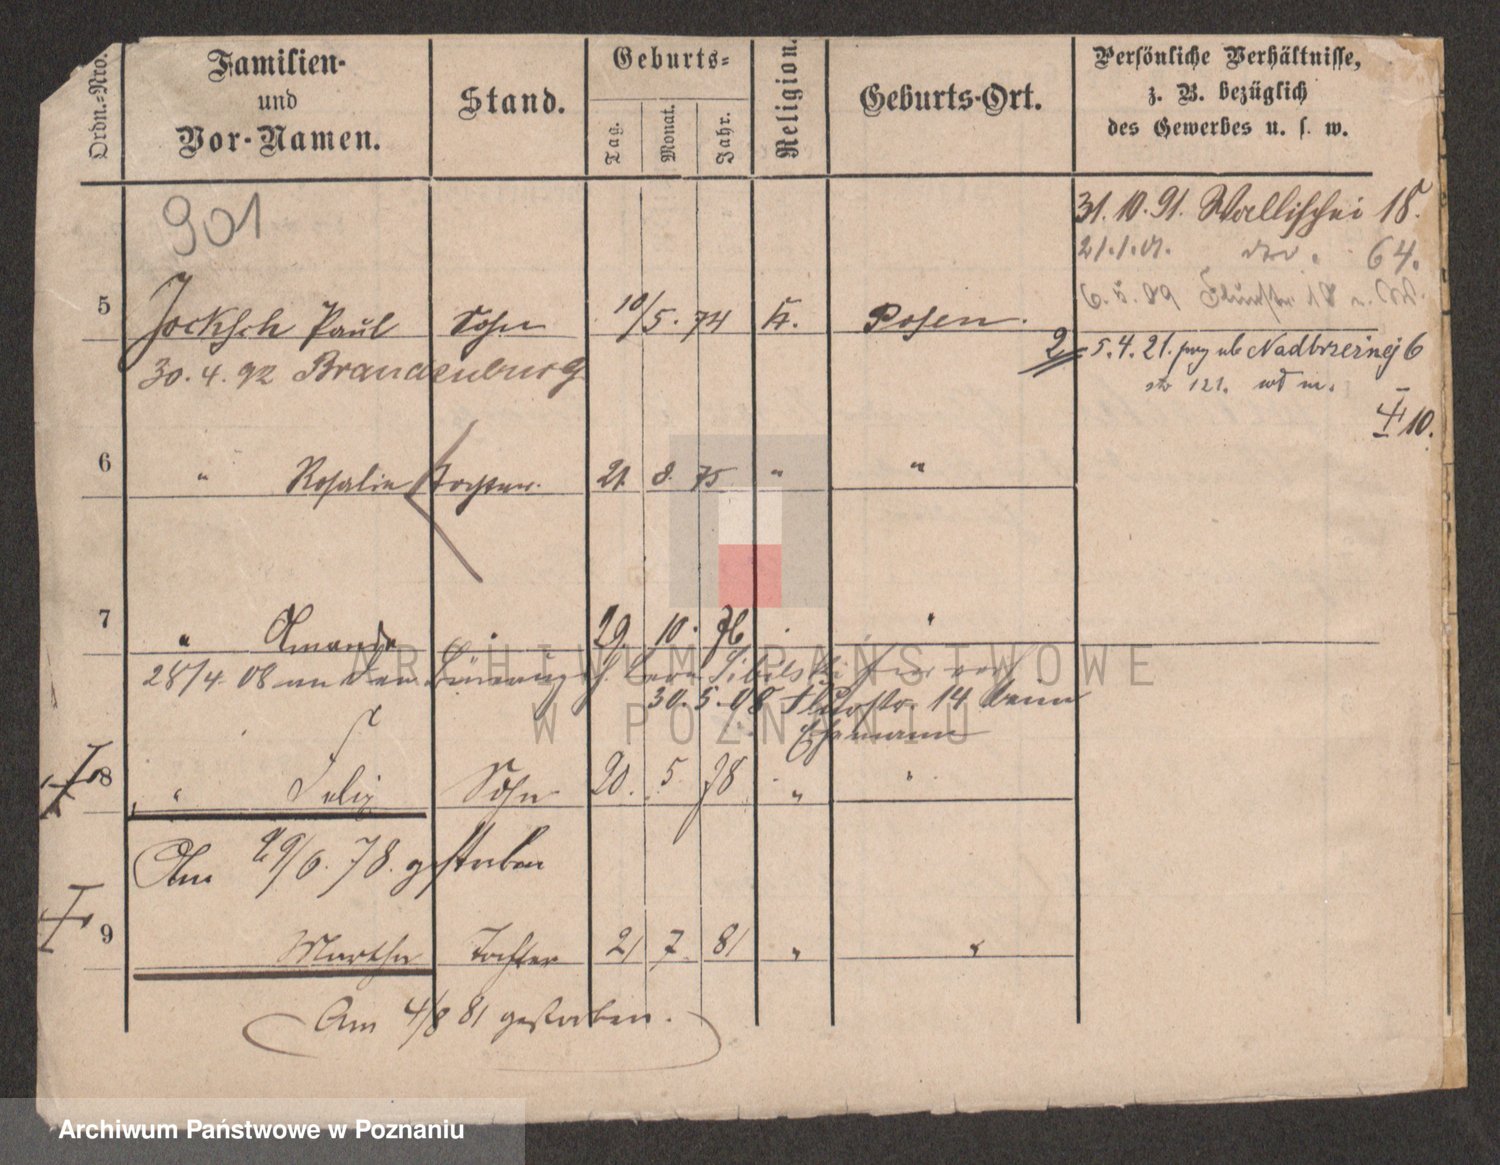 Ordn.=Nro.
Familien-
und
Vor-Namen.
Stand.
Geburts=
Tag.
Monat.
Jahr.
Religion.
Geburts-Ort.
Persönliche Verhältnisse,
z. B. bezüglich
des Gewerbes u. s. w.
901
31. 10. 91. Wallischei 18.
21.1.01. 64.
6. 5. 09 18
5 Jockisch Paul Sohn 10/5. 74 K. Posen.
30. 4. 92 Brandenburg
2 5. 4. 21. Nadbrzeżnej 6
str 121.
10.
6 " Rosalie Tochter. 21. 8. 75 " "
7 " Amanda " 29. 10. 76 " "
28/4. 08 an den
30. 5. 08 Flurstr. 14 beim
Ehemann
8 " Felix Sohn 20. 5. 78 " "
Am 29/6. 78. gestorben
9 Martha Tochter 21 7 81 " "
Am 4/8 81 gestorben.
ARCHIWUM PAŃSTWOWE
W POZNANIU
Archiwum Państwowe w Poznaniu